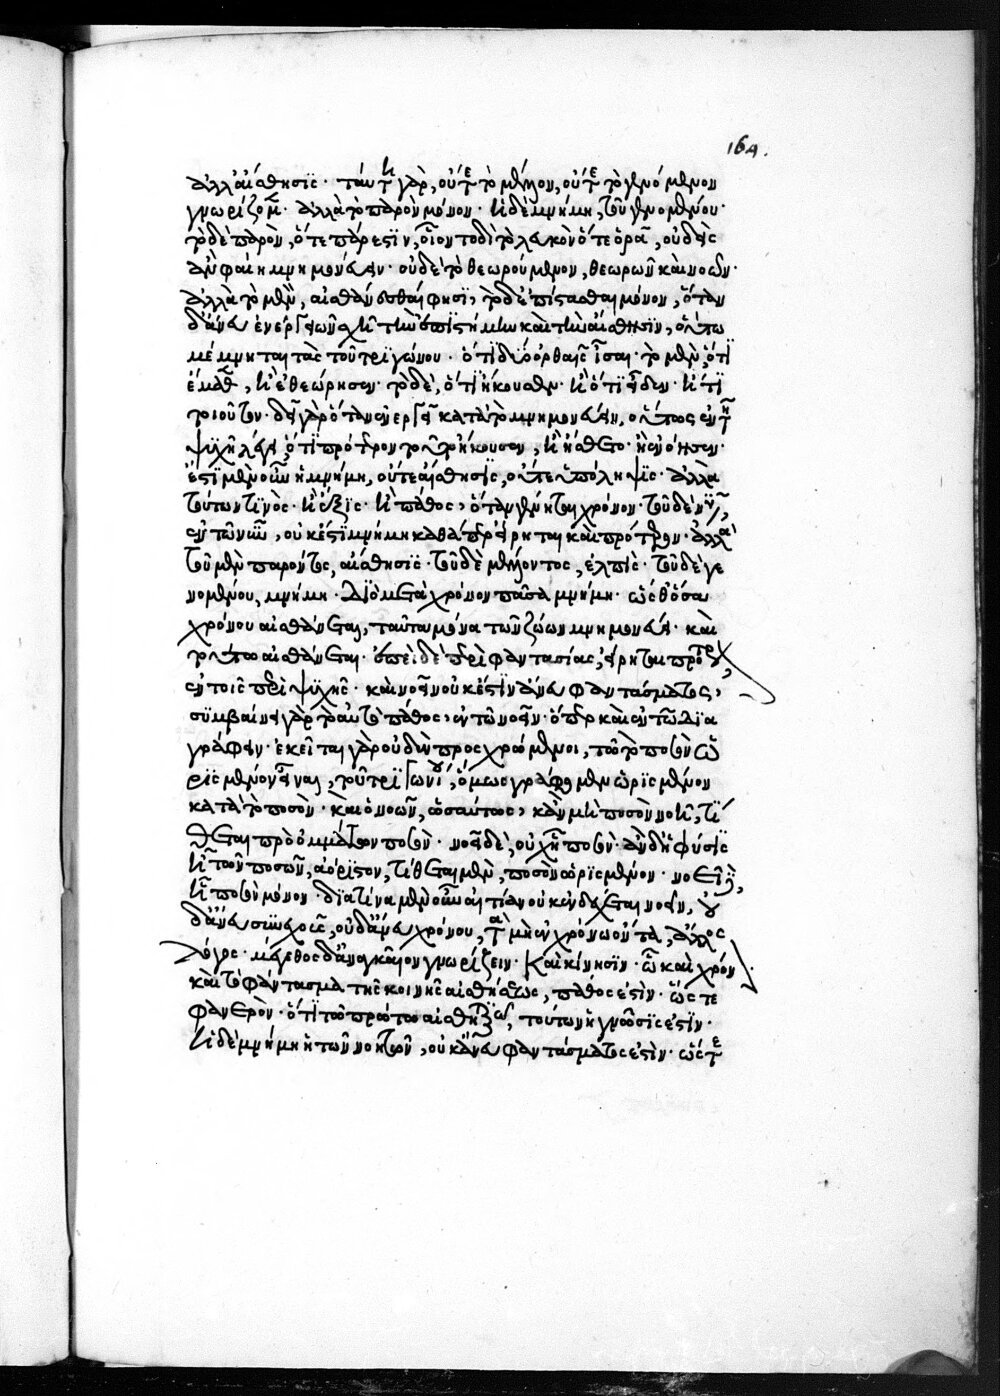 164.
ἀλλ' αἴσθησις· ταύτῃ γὰρ, οὔτε τὸ μέλλον, οὔτε τὸ γενόμενον
γνωρίζομεν· ἀλλὰ τὸ παρὸν μόνον· ἡ δὲ μνήμη, τοῦ γενομένου·
τὸ δὲ παρὸν, ὅτε πάρεστιν, οἷον τοδὶ τὸ λευκὸν ὅτε ὁρᾷ, οὐδεὶς
ἂν φαίη μνημονεύειν· οὐδὲ τὸ θεωρούμενον, θεωρῶν καὶ νοῶν·
ἀλλὰ τὸ μὲν, αἰσθάνεσθαί φησι, τὸ δ' ἐπίστασθαι μόνον, ὅταν
δ' ἄνευ ἐνεργειῶν ἔχῃ τὴν ἐπιστήμην καὶ τὴν αἴσθησιν, οὕτω
μέμνηται τὰς τοῦ τριγώνου· ὅτι δύο ὀρθαῖς ἴσαι· τὸ μὲν, ὅτι
ἔμαθεν, ἢ ἐθεώρησεν· τὸ δὲ, ὅτι ἤκουσεν· ἢ ὅτι εἶδεν· ἤ τι
τοιοῦτον· δεῖ γὰρ ὅταν ἐνεργῇ κατὰ τὸ μνημονεύειν, οὕτως ἐν τῇ
ψυχῇ λέγει, ὅτι πρότερον τοῦτο ἤκουσεν, ἢ ᾔσθετο· ἢ ἐνόησεν·
ἔστι μὲν οὖν ἡ μνήμη, οὔτε αἴσθησις, οὔτε ὑπόληψις· ἀλλὰ
τούτων τινὸς· ἢ ἕξις· ἢ πάθος, ὅταν γένηται χρόνον· τοῦ δὲ νῦν,
ἐν τῷ νῦν, οὐκ ἔστι μνήμη καθάπερ εἴρηται καὶ πρότερον· ἀλλὰ
τοῦ μὲν παρόντος, αἴσθησις· τοῦ δὲ μέλλοντος, ἐλπίς· τοῦ δὲ γε
νομένου, μνήμη· διὸ μετὰ χρόνον πᾶσα μνήμη· ὥσθ' ὅσα
χρόνου αἰσθάνεται, ταῦτα μόνα τῶν ζώων μνημονεύει· καὶ
τούτῳ αἰσθάνεται· ἐπεὶ δὲ περὶ φαντασίας, εἴρηται πρότερον,
ἐν τοῖς περὶ ψυχῆς· καὶ νοεῖν οὐκ ἔστιν ἄνευ φαντάσματος,
συμβαίνει γὰρ τὸ αὐτὸ πάθος, ἐν τῷ νοεῖν· ὅπερ καὶ ἐν τῷ δια
γράφειν· ἐκεῖ τε γὰρ οὐδὲν προσχρώμενοι, τῷ τὸ ποσὸν ὡ
ρισμένον εἶναι, τοῦ τριγώνου, ὅμως γράφομεν ὡρισμένον
κατὰ τὸ ποσόν· καὶ ὁ νοῶν, ὡσαύτως, κἂν μὴ ποσὸν νοῇ, τί
θεται πρὸ ὀμμάτων ποσὸν· νοεῖ δὲ, οὐχ ᾗ ποσὸν· ἂν δὲ ἡ φύσις
ᾖ τῶν ποσῶν, ἀόριστον, τίθεται μὲν, ποσὸν ὡρισμένον· νοεῖ δὲ,
ᾗ ποσὸν μόνον· διὰ τίνα μὲν οὖν αἰτίαν οὐκ ἐνδέχεται νοεῖν, οὐ
δὲν ἄνευ συνεχοῦς, οὐδ' ἄνευ χρόνου, τὰ μὴ ἐν χρόνῳ ὄντα, ἄλλος
λόγος· μέγεθος δ' ἀναγκαῖον γνωρίζειν· καὶ κίνησιν· ᾧ καὶ χρόνον·
καὶ τὸ φάντασμα τῆς κοινῆς αἰσθήσεως, πάθος ἐστίν· ὥστε
φανερὸν· ὅτι τῷ πρώτῳ αἰσθητικῷ, τούτων ἡ γνῶσίς ἐστιν·
ἡ δὲ μνήμη ἡ τῶν νοητῶν, οὐκ ἄνευ φαντάσματος ἐστὶν· ὥστε